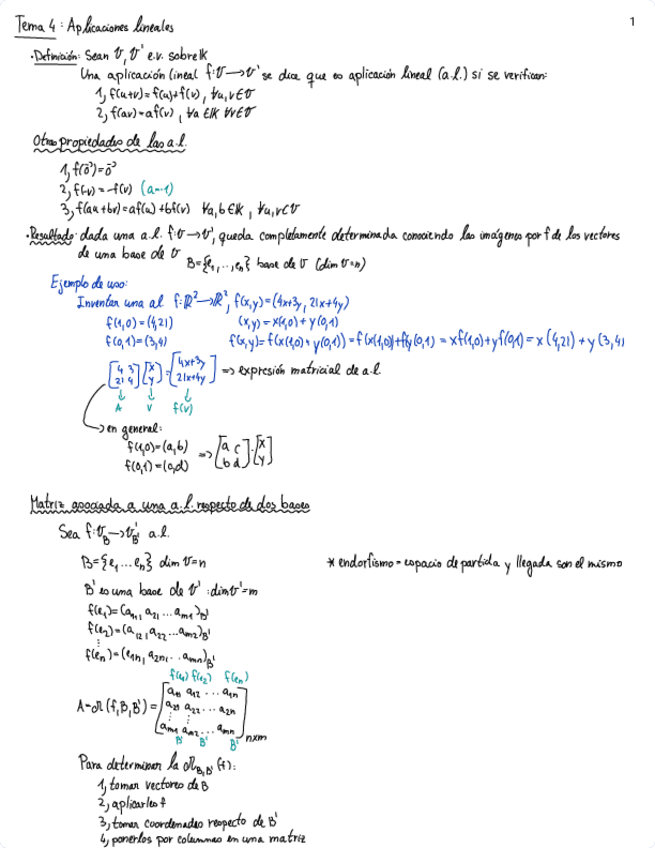 Tema 4: Aplicaciones lineales
1
·Definición: Sean V, V' e.v. sobre lk
Una aplicación lineal f: V→V' se dice que es aplicación lineal (a.l.) si se verifican:
1, f(u+v)=f(u)+f(v), ∀u,v∈V
2, f(av)=af(v), ∀a∈lk ∀v∈V
Otras propiedades de las a.l.
1, f(0⃗)=0⃗
2, f(-v)=-f(v) (a=-1)
3, f(au+bv)=af(u)+bf(v) ∀a,b∈lk, ∀u,v∈V
·Resultado: dada una a.l. f: V→V', queda completamente determinada conociendo las imágenes por f de los vectores
de una base de V B={e₁,..,eₙ} base de V (dim V=n)
Ejemplo de uso:
Inventar una al f: ℝ²→ℝ², f(x,y)=(4x+3y, 21x+4y)
f(1,0)=(4,21) (x,y)=x(1,0)+y(0,1)
f(0,1)=(3,4) f(x,y)=f(x(1,0)+y(0,1))=f(x(1,0))+f(y(0,1))=xf(1,0)+yf(0,1)=x(4,21)+y(3,4)
[4 3; 21 4][x; y]=[4x+3y; 21x+4y] => expresión matricial de a.l
A V f(v)
en general:
f(1,0)=(a,b)
f(0,1)=(c,d) => [a c; b d]·[x; y]
Matriz asociada a una a.l. respecto de dos bases
Sea f: V_B→V'_B' a.l.
B={e₁...eₙ} dim V=n
* endorfismo = espacio de partida y llegada son el mismo
B' es una base de V' : dim V'=m
f(e₁)=(a₁₁, a₂₁ ... aₘ₁)_B'
f(e₂)=(a₁₂, a₂₂ ... aₘ₂)_B'
⋮
f(eₙ)=(a₁ₙ, a₂ₙ, ... aₘₙ)_B'
f(e₁) f(e₂) f(eₙ)
A=M(f,B,B')=[a₁₁ a₁₂ ... a₁ₙ; a₂₁ a₂₂ ... a₂ₙ; ⋮ ⋮; aₘ₁ aₘ₂ ... aₘₙ] nxm
B' B' B'
Para determinar la M_B,B' (f):
1, tomar vectores de B
2, aplicarles f
3, tomar coordenadas respecto de B'
4, ponerlos por columnas en una matriz